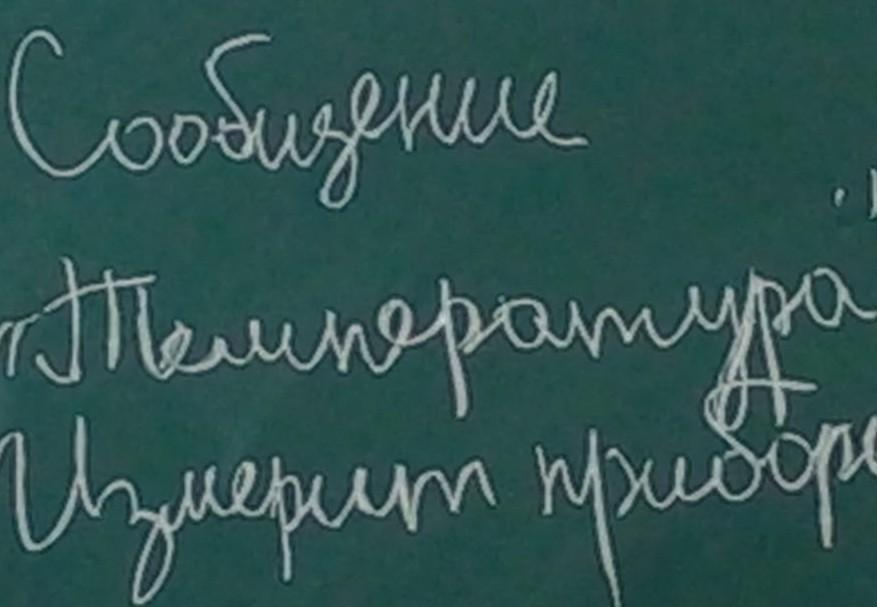 Сообщение
"Температура"
Измерит прибора